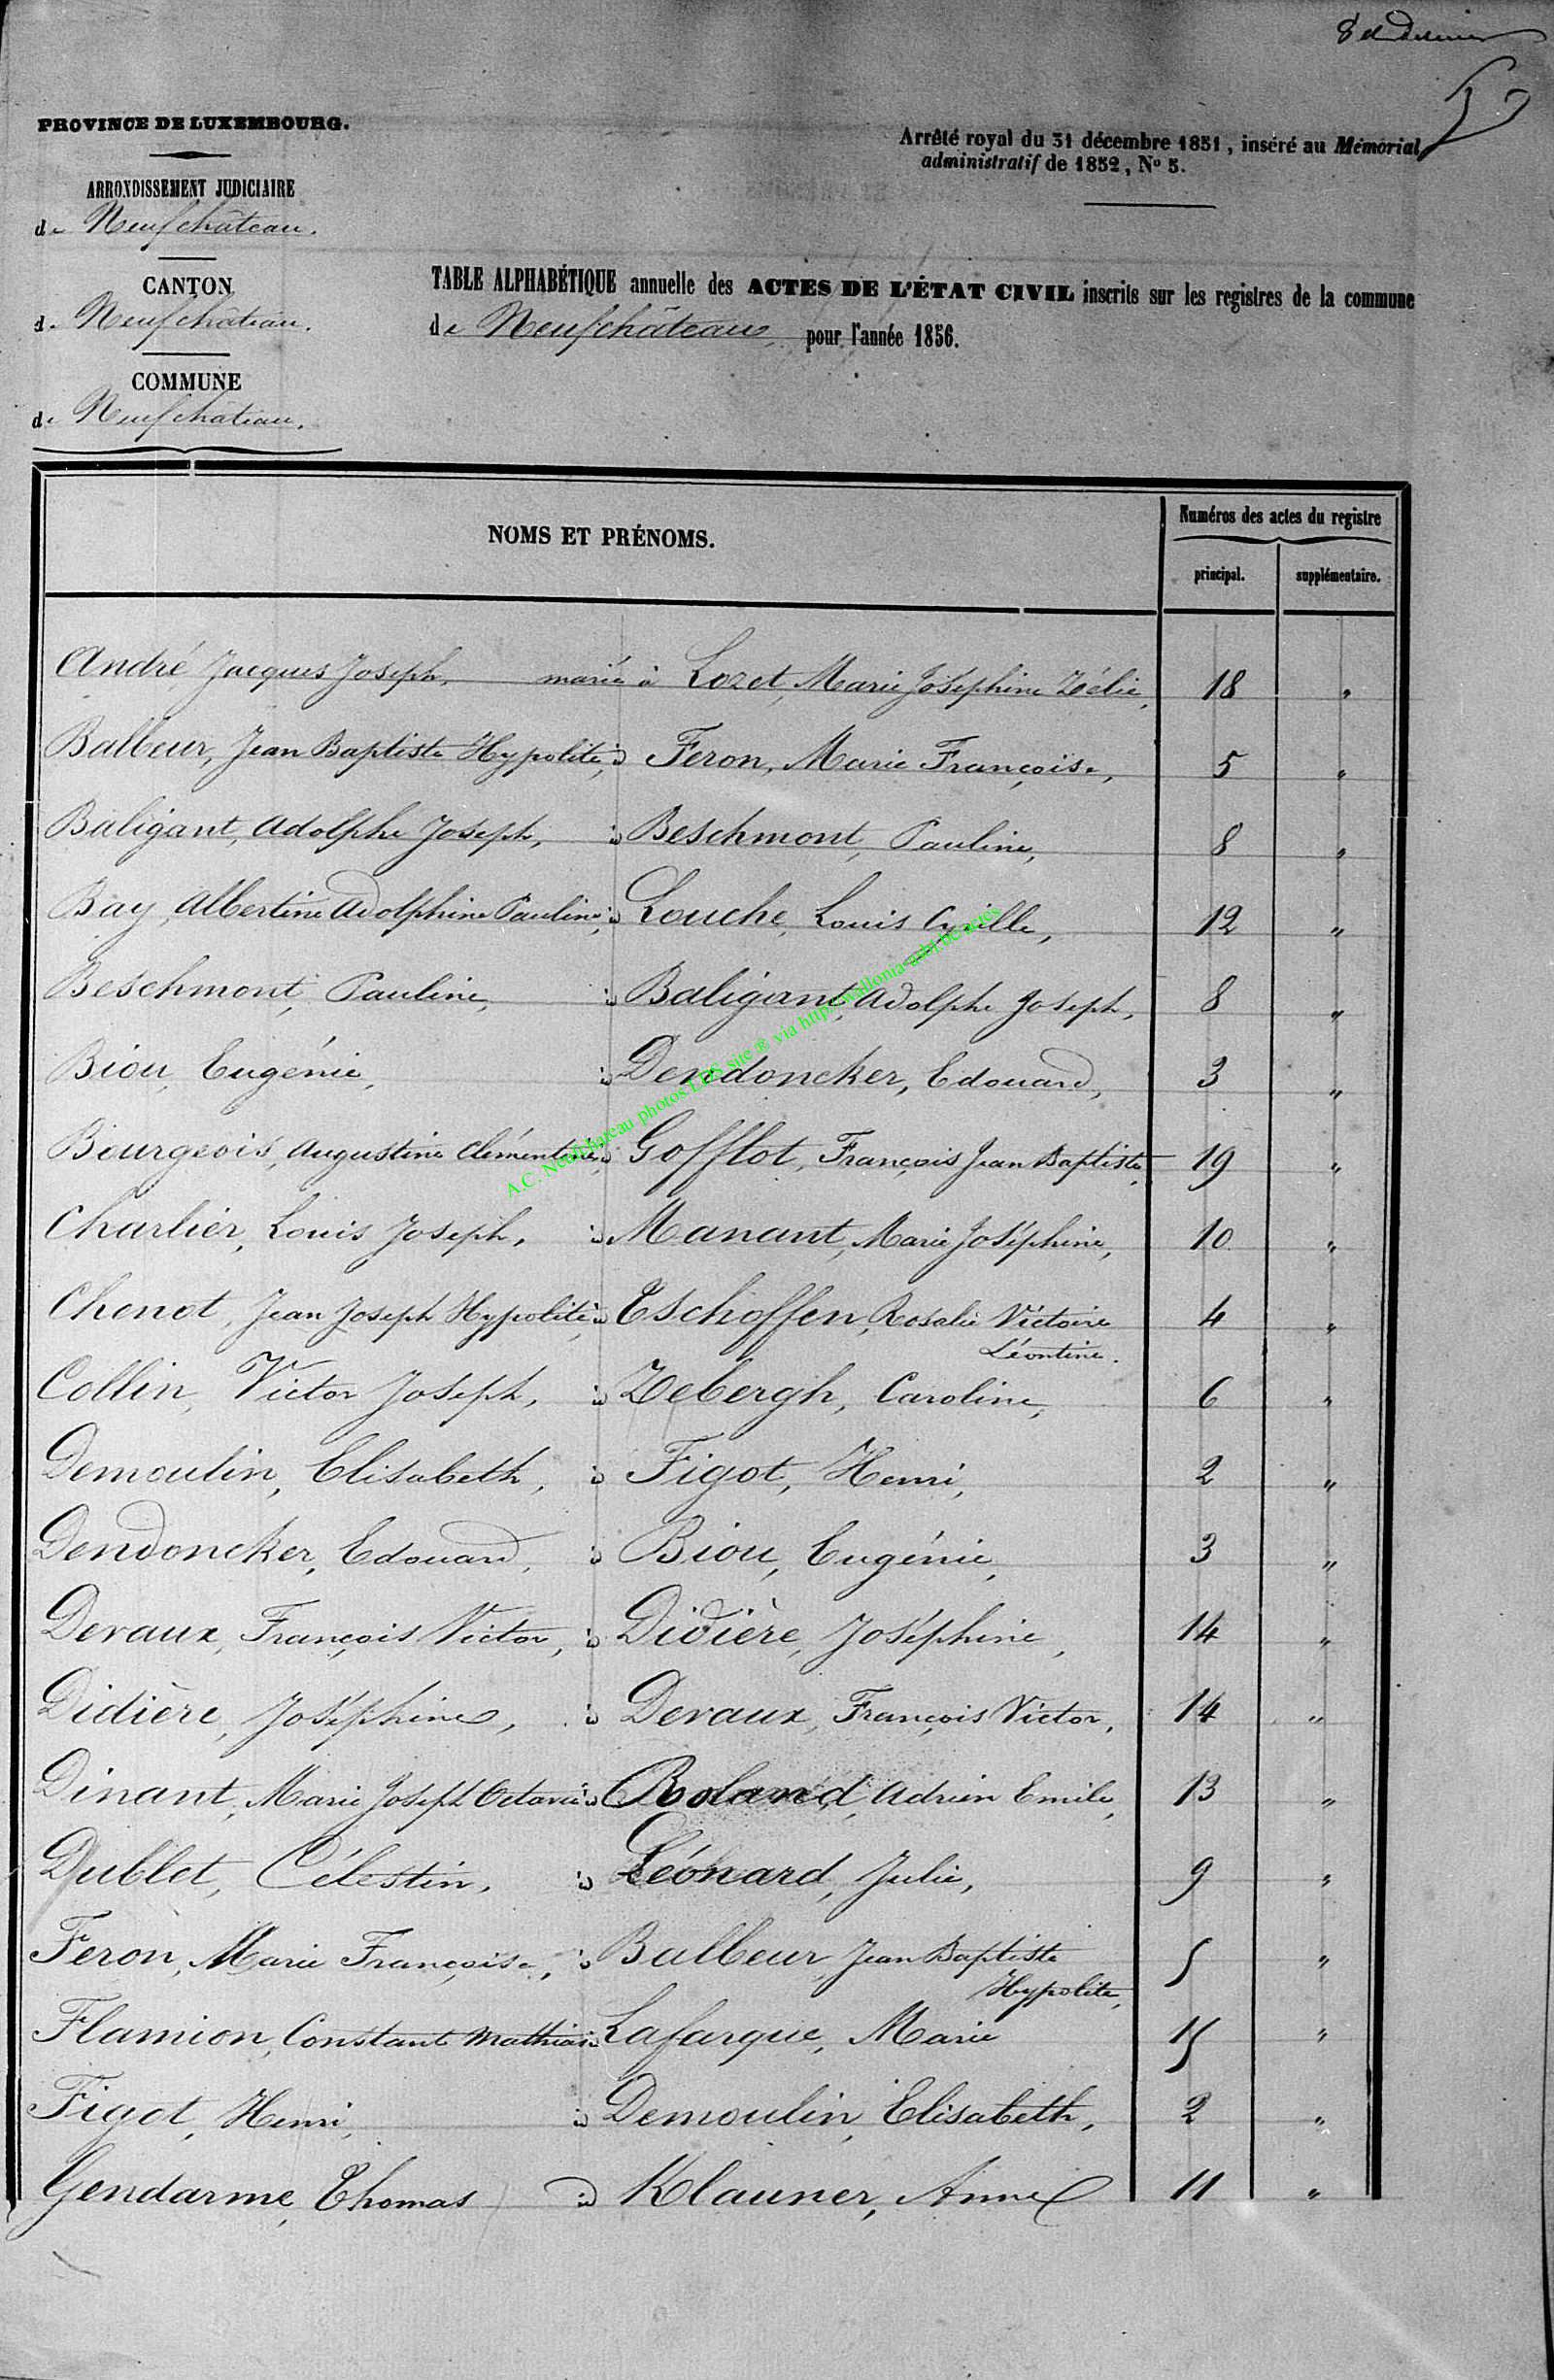 8 et dernier
PROVINCE DE LUXEMBOURG.
Arrêté royal du 31 décembre 1851, inséré au Mémorial
administratif de 1852, No 5.
ARRONDISSEMENT JUDICIAIRE
de Neufchâteau.
CANTON
de Neufchâteau.
TABLE ALPHABÉTIQUE annuelle des ACTES DE L'ÉTAT CIVIL inscrits sur les registres de la commune
de Neufchâteau pour l'année 1856.
COMMUNE
de Neufchâteau.
NOMS ET PRÉNOMS.
Numéros des actes du registre
principal. supplémentaire.
André, Jacques Joseph, marié à Lozet, Marie Joséphine Zélie, 18 "
Balbeur, Jean Baptiste Hypolite, id Feron, Marie Françoise, 5 "
Baligant, Adolphe Joseph, id Beschmont, Pauline, 8 "
Bay, Albertine Adolphine Pauline, id Louche, Louis Cyrille, 12 "
Beschmont, Pauline, id Baligant, Adolphe Joseph, 8 "
Biou, Eugénie, id Dendoncker, Edouard, 3 "
Bourgeois, Augustine Clémentine, id Gofflot, François Jean Baptiste, 19 "
Charlier, Louis Joseph, id Manant, Marie Joséphine, 10 "
Chenot, Jean Joseph Hypolite, id Eschoffen, Rosalie Victoire 4 "
Léontine.
Collin, Victor Joseph, id Zebergh, Caroline, 6 "
Demoulin, Elisabeth, id Figot, Henri, 2 "
Dendoncker, Edouard, id Biou, Eugénie, 3 "
Devaux, François Victor, id Didière, Joséphine, 14 "
Didière, Joséphine, id Devaux, François Victor, 14 "
Dinant, Marie Joseph Octavie id Roland, Adrien Emile, 13 "
Dublet, Célestin, id Léonard, Julie, 9 "
Feron, Marie Françoise, id Balbeur, Jean Baptiste 5 "
Hypolite,
Flamion, Constant Mathias id Lafarque, Marie 15 "
Figot, Henri, id Demoulin, Elisabeth, 2 "
Gendarme, Thomas id Klauner, Anne 11 "
A.C. Neufchateau photos LDS site ® via http://wallonia-asbl.be actes